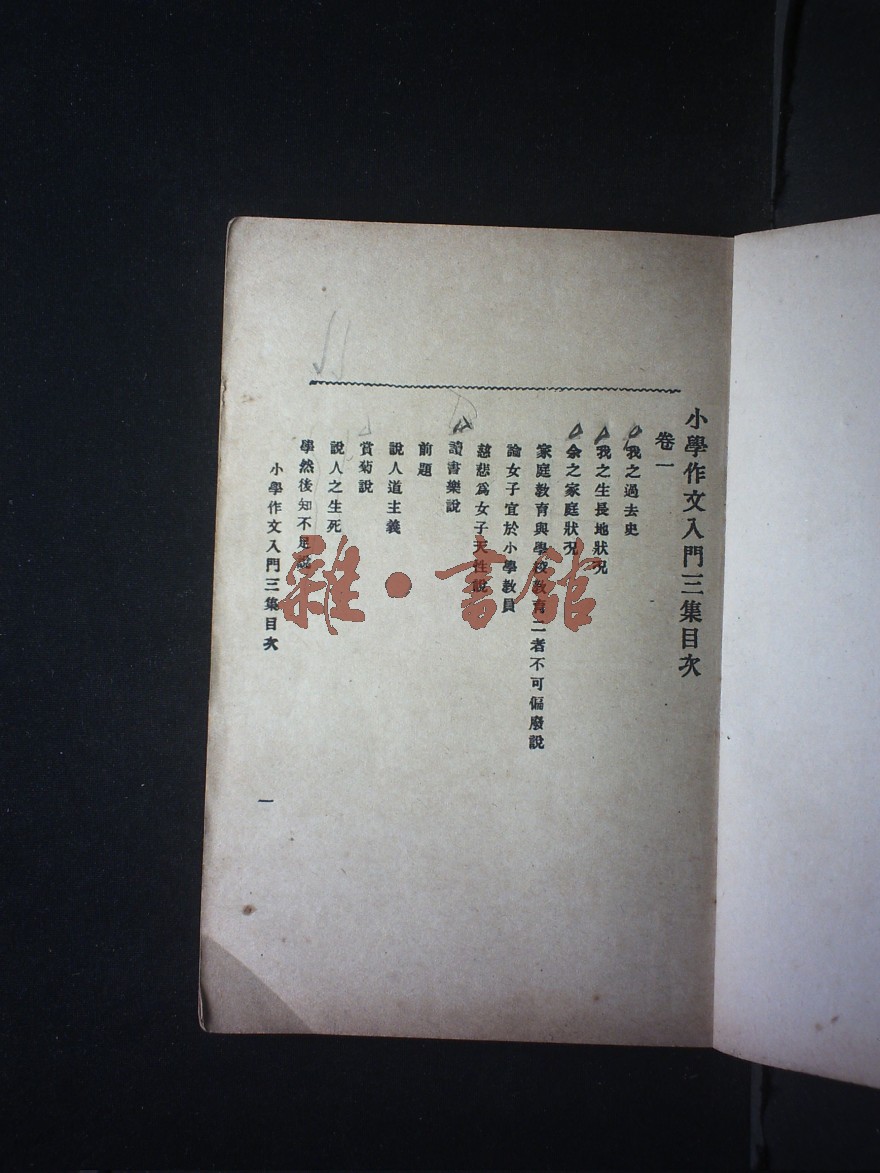 小學作文入門三集目次
卷一
我之過去史
我之生長地狀况
余之家庭狀况
家庭教育與學校教育二者不可偏廢說
論女子宜於小學教員
慈悲爲女子天性說
讀書樂說
前題
說人道主義
賞菊說
說人之生死
學然後知不足說
小學作文入門三集目次
一
雜·書館